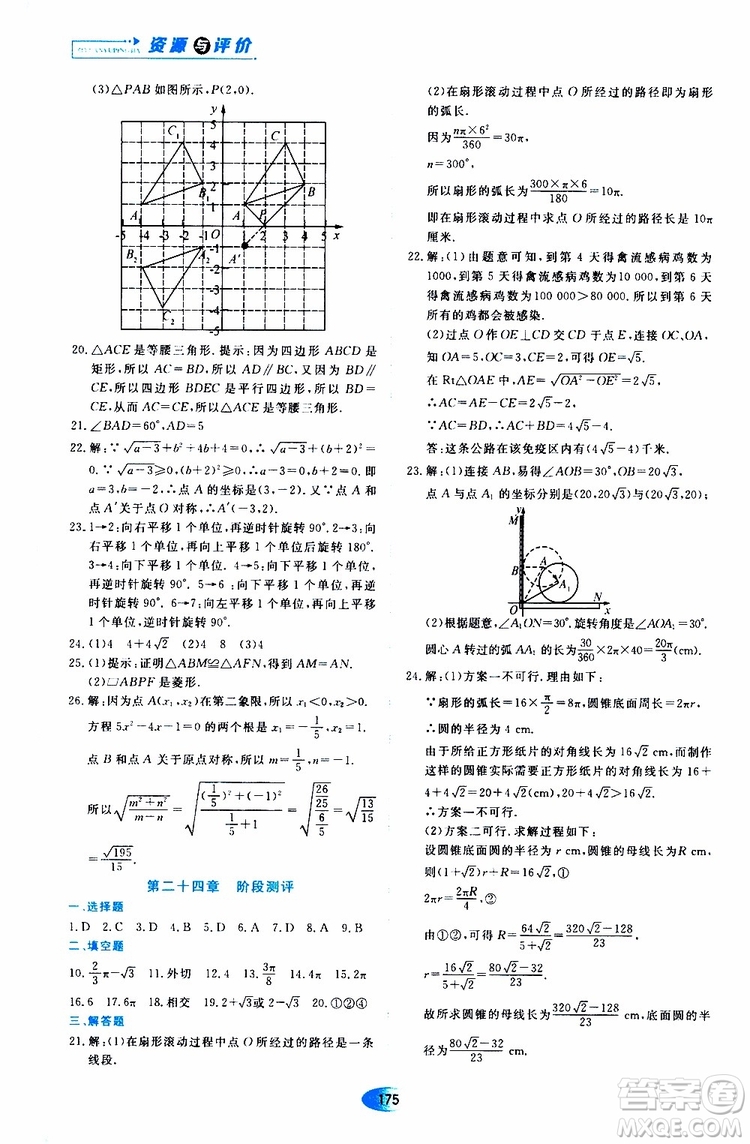 资源与评价
(3)△PAB 如图所示,P(2,0).
y
5
4
3
2
1
C₁
C
B₁
B
A₁
A
P
O
-5 -4 -3 -2 -1
1 2 3 4 5 x
-1
-2
-3
-4
-5
B₂
A₂
A′
C₂
20. △ACE 是等腰三角形. 提示: 因为四边形 ABCD 是
矩形, 所以 AC=BD, 所以 AD∥BC. 又因为 BD∥
CE, 所以四边形 BDEC 是平行四边形, 所以 BD=
CE, 从而 AC=CE, 所以△ACE 是等腰三角形.
21. ∠BAD=60°, AD=5
22. 解: ∵ √(a-3)+b²+4b+4=0, ∴ √(a-3)+(b+2)²=
0. ∵ √(a-3)≥0, (b+2)²≥0, ∴ a-3=0, b+2=0,
∴ a=3, b=-2, ∴ 点 A 的坐标是(3,-2). 又∵点 A 与
点 A′关于点 O 对称, ∴ A′(-3,2).
23. 1→2:向右平移 1 个单位, 再逆时针旋转 90°. 2→3:
向右平移 1 个单位, 再逆时针旋转 180°.
3→4: 向右平移 1 个单位, 向下平移 1 个单位,
再逆时针旋转 90°. 4→5: 向下平移 1 个单位,
再逆时针旋转 90°. 5→6: 向下平移 1 个单位, 向右平移
1 个单位, 逆时针旋转 90°.
24. (1)4 4+4√2 (2)4 8 (3)4
25. (1)提示: 证明△ABM≌△AFN, 得到 AM=AN.
(2)□ABPF 是菱形.
26. 解: 因为点 A(x₁, x₂)在第二象限, 所以 x₁<0, x₂>0.
方程 5x²-4x-1=0 的两个根是 x₁=-1/5, x₂=1.
点 B 和点 A 关于原点对称, 所以 m=1/5, n=-1.
所以√((m²+n²)/(m-n))=√(((1/5)²+(-1)²)/(1/5+1))=√((26/25)/(6/5))=√(13/15)
=√195/15.
第二十四章 阶段测评
一、选择题
1. D 2. C 3. A 4. D 5. D 6. C 7. D 8. A 9. B
二、填空题
10. 2/3π-√3 11. 外切 12. 4 13. 3π/8 14. 4 15. 24
16. 6 17. 8 18. 相交 19. 2+√3或2-√3 20. ①②④
三、解答题
21. 解: (1)在扇形滚动过程中点 O 所经过的路径是一条
线段.
(2)在扇形滚动过程中点 O 所经过的路径即为扇形
的弧长.
因为(nπ×6²)/360=30π,
n=300°,
所以扇形的弧长为(300×π×6)/180=10π,
即在扇形滚动过程中求点 O 所经过的路径长是 10π
厘米.
22. 解: (1)由题意可知, 到第 4 天得禽流感病鸡数为
1000, 到第 5 天得禽流感病鸡数为 10 000, 到第 6 天
得禽流感病鸡数为 100 000>80 000. 所以, 到第 6 天
所有的鸡都会被感染.
(2)过点 O 作 OE⊥CD 交 CD 于点 E, 连接 OC, OA.
知 OA=5, OC=OD=2, CD=4.
在 Rt△OAE 中, AE=√(OA²-OE²)=2√5,
∴ AC=AE-CE=2√5-2.
∵ AC=BD, ∴ AC+BD=4√5-4.
答: 这条公路在该免疫区内有(4√5-4)千米.
23. 解: (1)连接 AO, 易得∠AOB=30°, OB=20√3,
点 A 与点 A₁ 的坐标分别是(20,20√3)(20√3,20).
y
M
B
A
A₁
O
N
x
(2)根据题意, ∠A₁ON=30°. 旋转角度是∠AOA₁=30°.
圆心 A 转过的弧 AA₁ 长为30/360×2π×40=20π/3(cm).
24. 解: (1)方案一不可行. 理由如下:
∵扇形的弧长=16×π/2=8π, 圆锥底面周长=2πr,
∴圆的半径为 4 cm.
由于所给正方形纸片的对角线长为 16√2 cm, 而制作
这样的圆锥实际需要正方形纸片的对角线长为 16+
4+4√2=(20+4√2)cm, 20+4√2>16√2.
∴方案一不可行.
(2)方案二可行. 求解过程如下:
设圆锥底面圆的半径为 r cm, 圆锥的母线长为 R cm,
则(1+√2)r+R=16√2, ①
2πr=2πR/4, ②
由①②, 可得 R=64√2/(5+√2)=(320√2-128)/23,
r=16√2/(5+√2)=(80√2-32)/23.
故所求圆锥的母线长为(320√2-128)/23 cm, 底面圆的半
径为(80√2-32)/23 cm.
175
答案圈
MXQE.COM